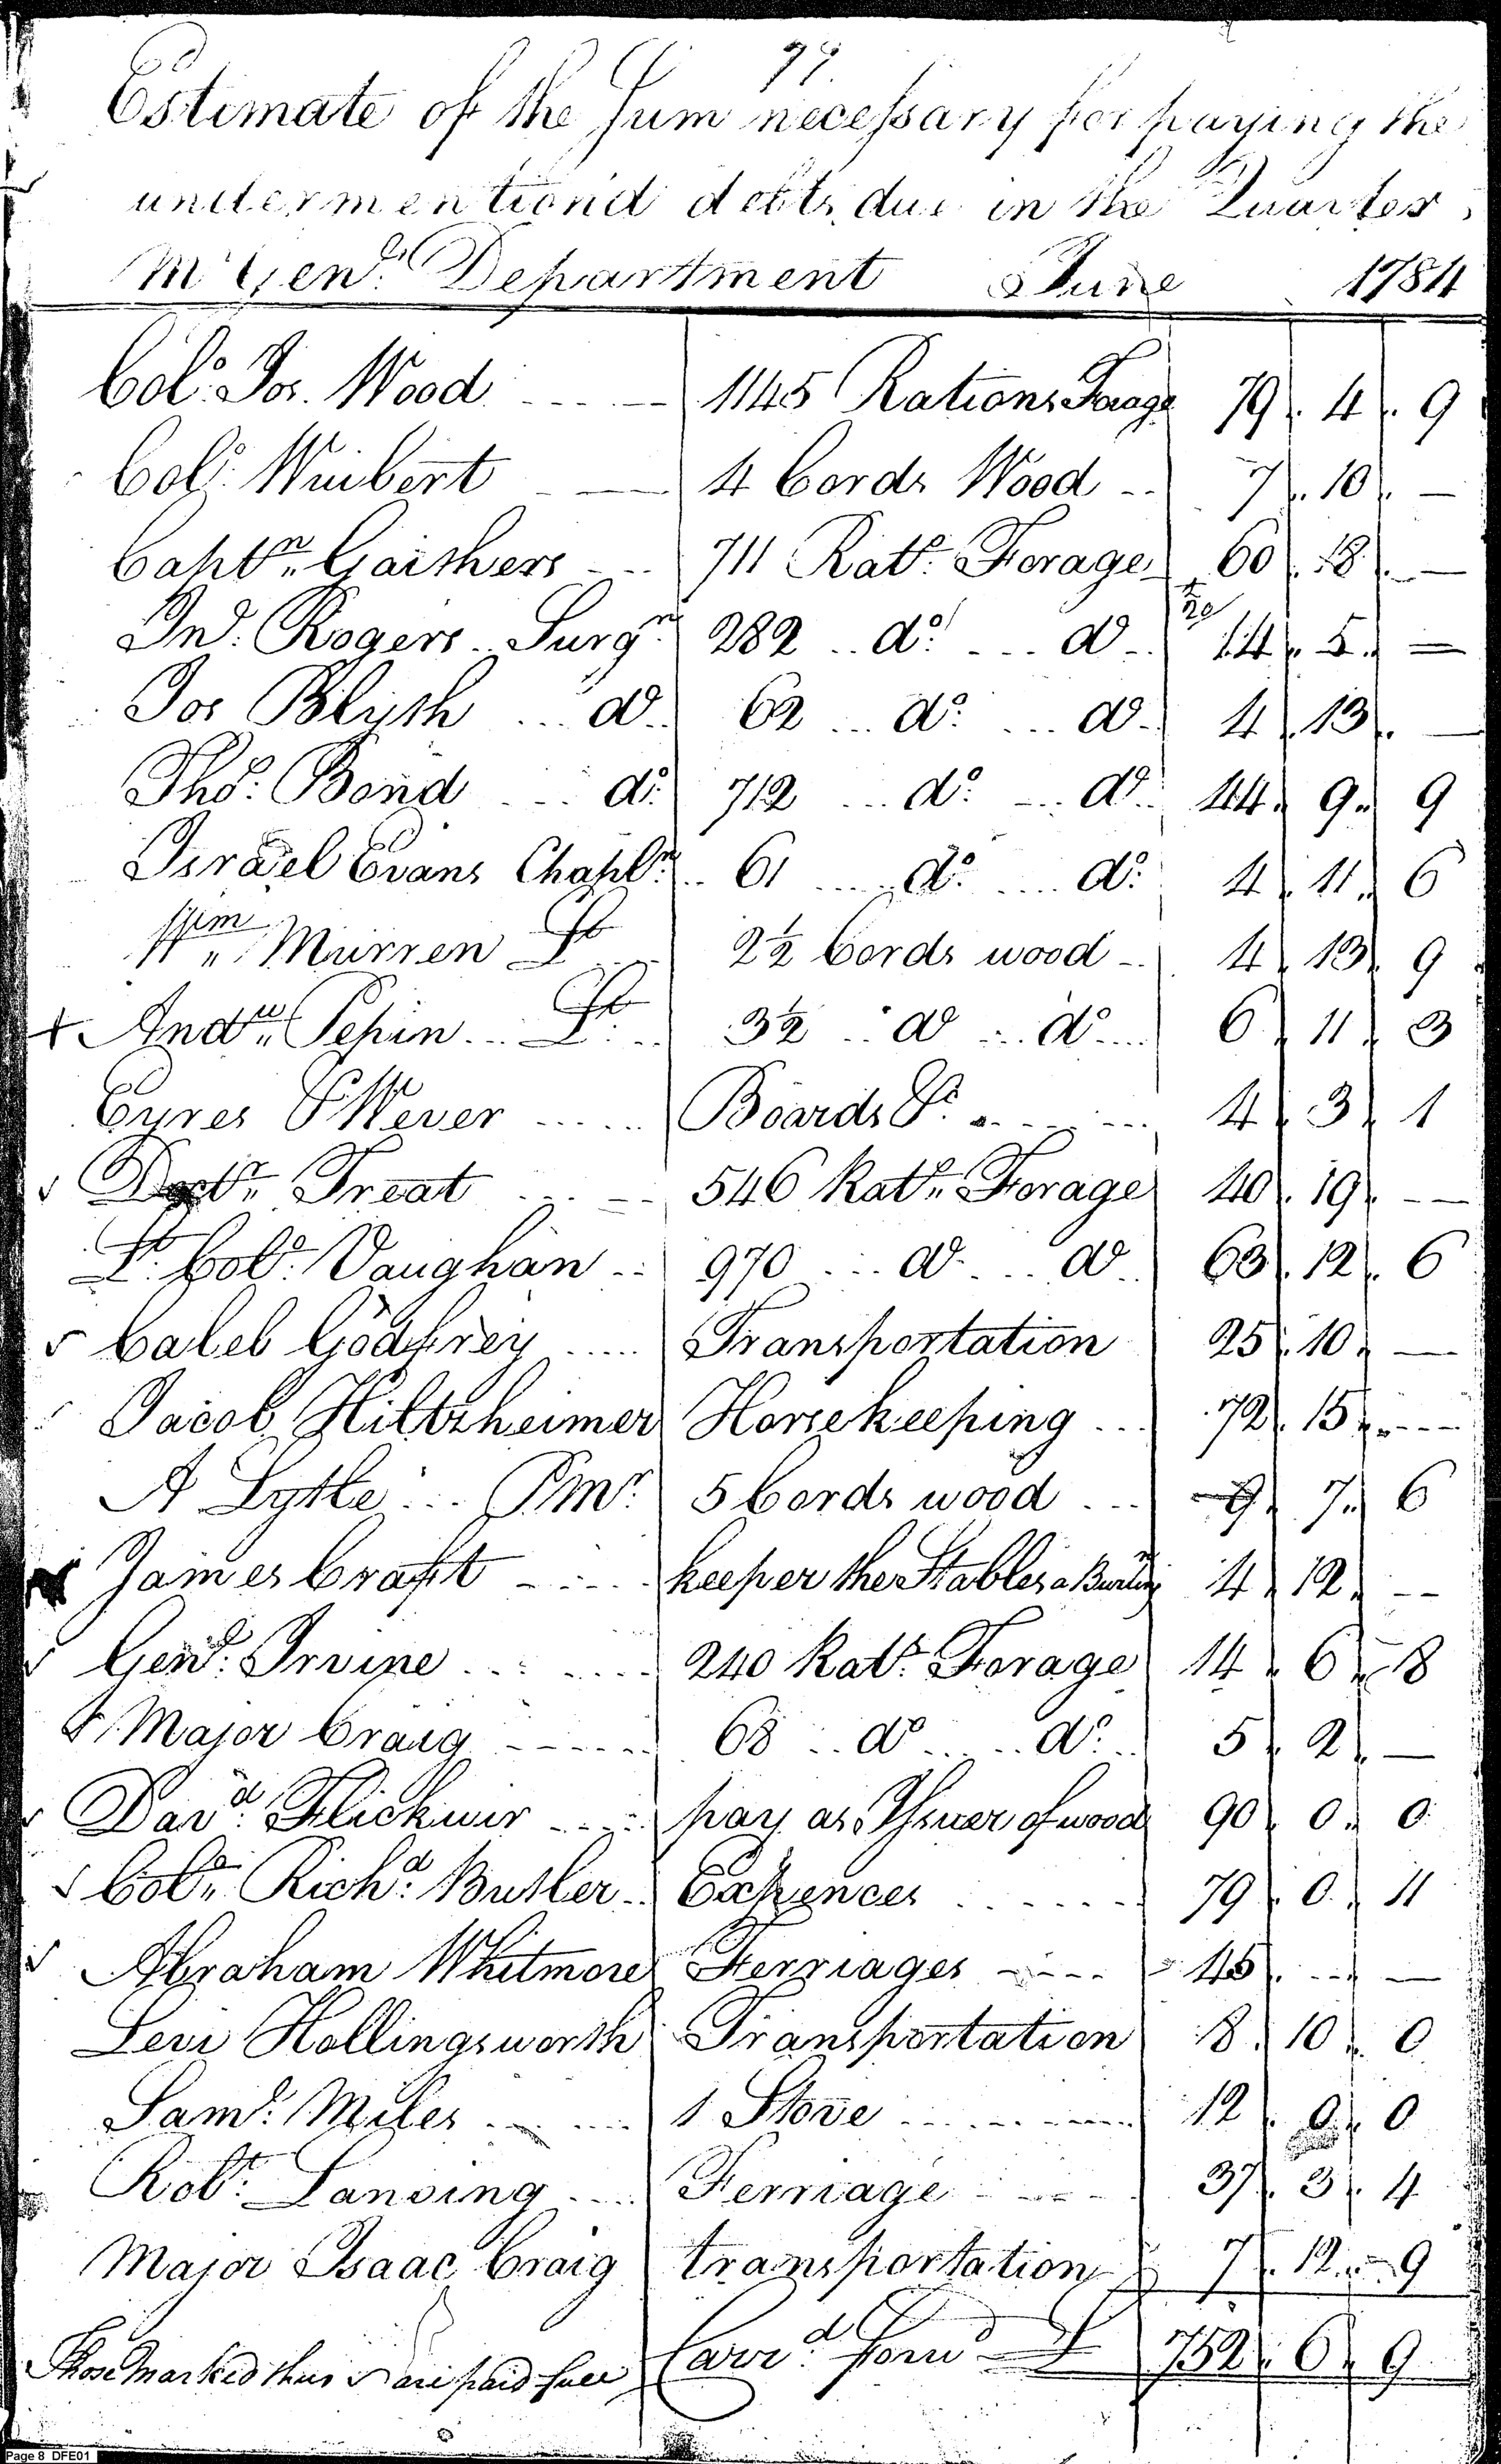 79.
Estimate of the Sum necessary for paying the
undermention'd debts due in the Quarter
Mr Genl. Department June 1784
Colo. Jos. Wood 1145 Rations Forage 79 . 4 . 9
Colo. Wuibert 4 Cords Wood 7 . 10 . —
Captn. Gaithers 711 Rats. Forage 60 . 18 . —
Jno. Rogers Surgn. 282 do. do. 14 . 5 . —
Jos Blyth do. 62 do. do. 4 . 13 . —
Thos. Bond do. 712 do. do. 44 . 9 . 9
Israel Evans Chapln. 61 do. do. 4 . 11 . 6
Wm. Murren Lt. 2½ Cords wood 4 . 13 . 9
+ Andw. Pepin Lt. 3½ do do 6 . 11 . 3
Eyres & Wever Boards &c. 4 . 3 . 1
✓ Doctr. Treat 546 Rats. Forage 40 . 19 . —
Lt. Colo. Vaughan 970 do. do 63 . 12 . 6
✓ Caleb Godfrey Transportation 25 . 10 . —
Jacob Hiltzheimer Horsekeeping 72 . 15 . —
A Lytle PMr. 5 Cords wood 9 . 7 . 6
James Craft keeper the Stables a Burling 4 . 12 . —
✓ Genl. Irvine 240 Rats. Forage 14 . 6 . 8
✓ Major Craig 68 do do. 5 . 2 . —
✓ Davd. Flickwir pay as Issuer of wood 90 . 0 . 0
✓ Colo. Richd. Butler Expences 79 . 0 . 11
✓ Abraham Whitmore Ferriages 45 . — . —
Levi Hollingsworth Transportation 8 . 10 . 0
Saml. Miles 1 Stove 12 . 0 . 0
Robt. Lansing Ferriage 37 . 3 . 4
Major Isaac Craig transportation 7 . 12 . 9
Those marked thus ✓ are paid full Carrd. forwd 752 . 6 . 9
Page 8 DFE01